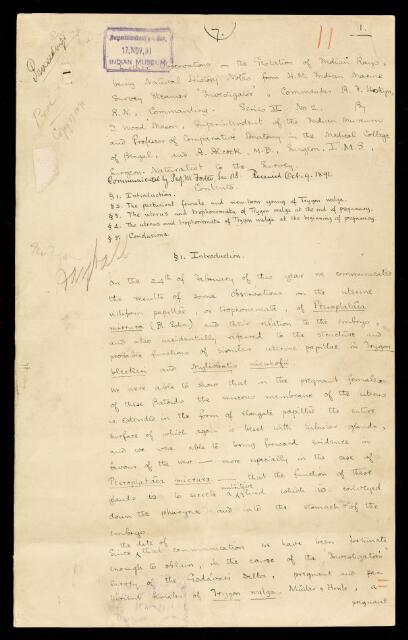 7.
11
1.
Proceedings
Superintendent's
17. NOV. 91
INDIAN MUSEUM
Further Observations on the Gestation of Indian Rays,
being Natural History Notes from H.M. Indian Marine
Survey Steamer 'Investigator', Commander R. F. Hoskyn,
R.N., Commanding. Series II No 2. By
J. Wood Mason, Superintendent of the Indian Museum
and Professor of Comparative Anatomy in the Medical College
of Bengal, and A. Alcock, M.B., Surgeon, I.M.S.,
Surgeon Naturalist to the Survey.
Communicated by Prof. M. Foster, Sec. R.S. Received Oct. 9. 1891.
Contents.
§ 1. Introduction.
§ 2. The parturient female and new-born young of Trygon walga.
§ 3. The uterus and trophonemata of Trygon walga at the end of pregnancy.
§ 4. The uterus and trophonemata of Trygon walga at the beginning of pregnancy.
§ 5. Conclusions.
§ 1. Introduction.
On the 24th of February of this year we communicated
the results of some observations on the uterine
villiform papillae, or trophonemata, of Pteroplatæa
micrura (Bl. Schn.) and their relation to the embryo,
and also incidentally referred to the structure and
probable functions of similar uterine papillae in Trygon
bleekeri and Myliobatis nieuhofii
We were able to show that in the pregnant females
of these Batoids the mucous membrane of the uterus
is extended in the form of elongate papillae the entire
surface of which again is beset with tubular glands,
and we were able to bring forward evidence in
favour of the view — more especially in the case of
Pteroplatæa micrura — that the function of these
glands is to secrete a nutritive fluid which is conveyed
down the pharynx and into the stomach of the
embryo.
Since the date of that communication we have been fortunate
enough to obtain, in the course of the 'Investigator's'
survey of the Godávari Delta, pregnant and
females of Trygon walga, Müller & Henle, a
pregnant